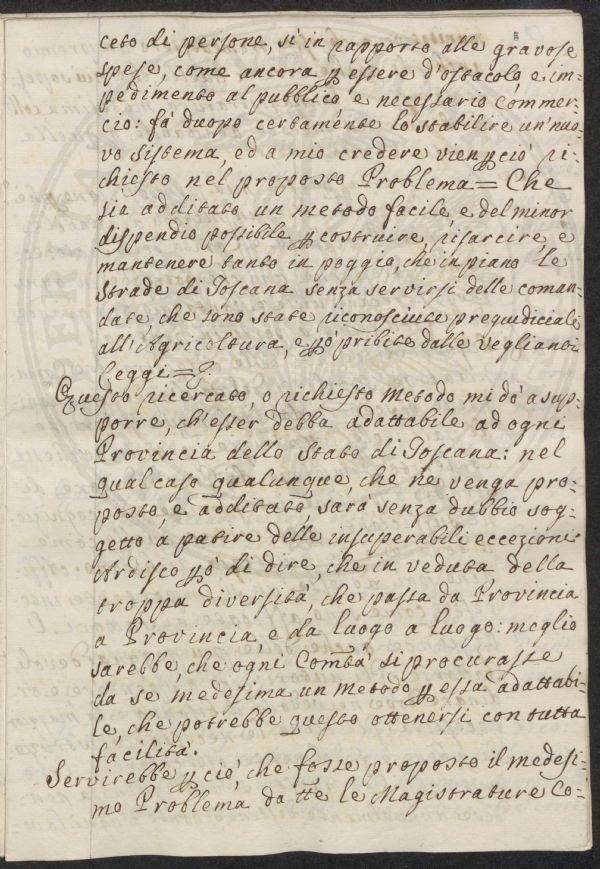 ceto di persone, sì in rapporto alle gravose
spese, come ancora ꝑ essere d'ostacolo e im-
pedimento al pubblico e necessario Commer-
cio: fà duopo certamente lo stabilire un' nuo-
vo sistema, ed a mio credere vien ꝑciò ri-
chiesto nel proposto Problema = Che
sia additato un metodo facile e del minor
dispendio possibile ꝑ costruire, risarcire, e
mantenere tanto in poggio, che in piano le
Strade di Toscana senza servirsi delle coman-
date, che sono state riconosciute pregiudiciali
all'Agricoltura, e ꝑò pribite dalle veglianti
Leggi =?
Questo ricercato, o richiesto Metodo mi dò a sup-
porre, ch'esser debba adattabile ad ogni
Provincia dello Stato di Toscana: nel
qual caso qualunque, che ne venga pro-
posto, e additato sarà senza dubbio sog-
getto à patire delle insuperabili eccezioni.
Ardisco ꝑò di dire, che in veduta della
troppa diversità, che passa da Provincia
a Provincia, e da luogo a luogo: meglio
sarebbe, che ogni Comtà si procurasse
da se medesima un metodo ꝑ essa adattabi-
le, che potrebbe questo ottenersi con tutta
facilità.
Servirebbe ꝑ ciò, che fosse proposto il medesi-
mo Problema da tte le Magistrature Co-